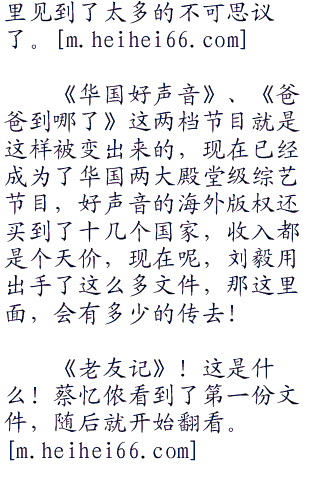 里见到了太多的不可思议
了。[m.heihei66.com]
《华国好声音》、《爸
爸到哪了》这两档节目就是
这样被变出来的，现在已经
成为了华国两大殿堂级综艺
节目，好声音的海外版权还
买到了十几个国家，收入都
是个天价，现在呢，刘毅用
出手了这么多文件，那这里
面，会有多少的传去！
《老友记》！这是什
么！蔡忆侬看到了第一份文
件，随后就开始翻看。
[m.heihei66.com]